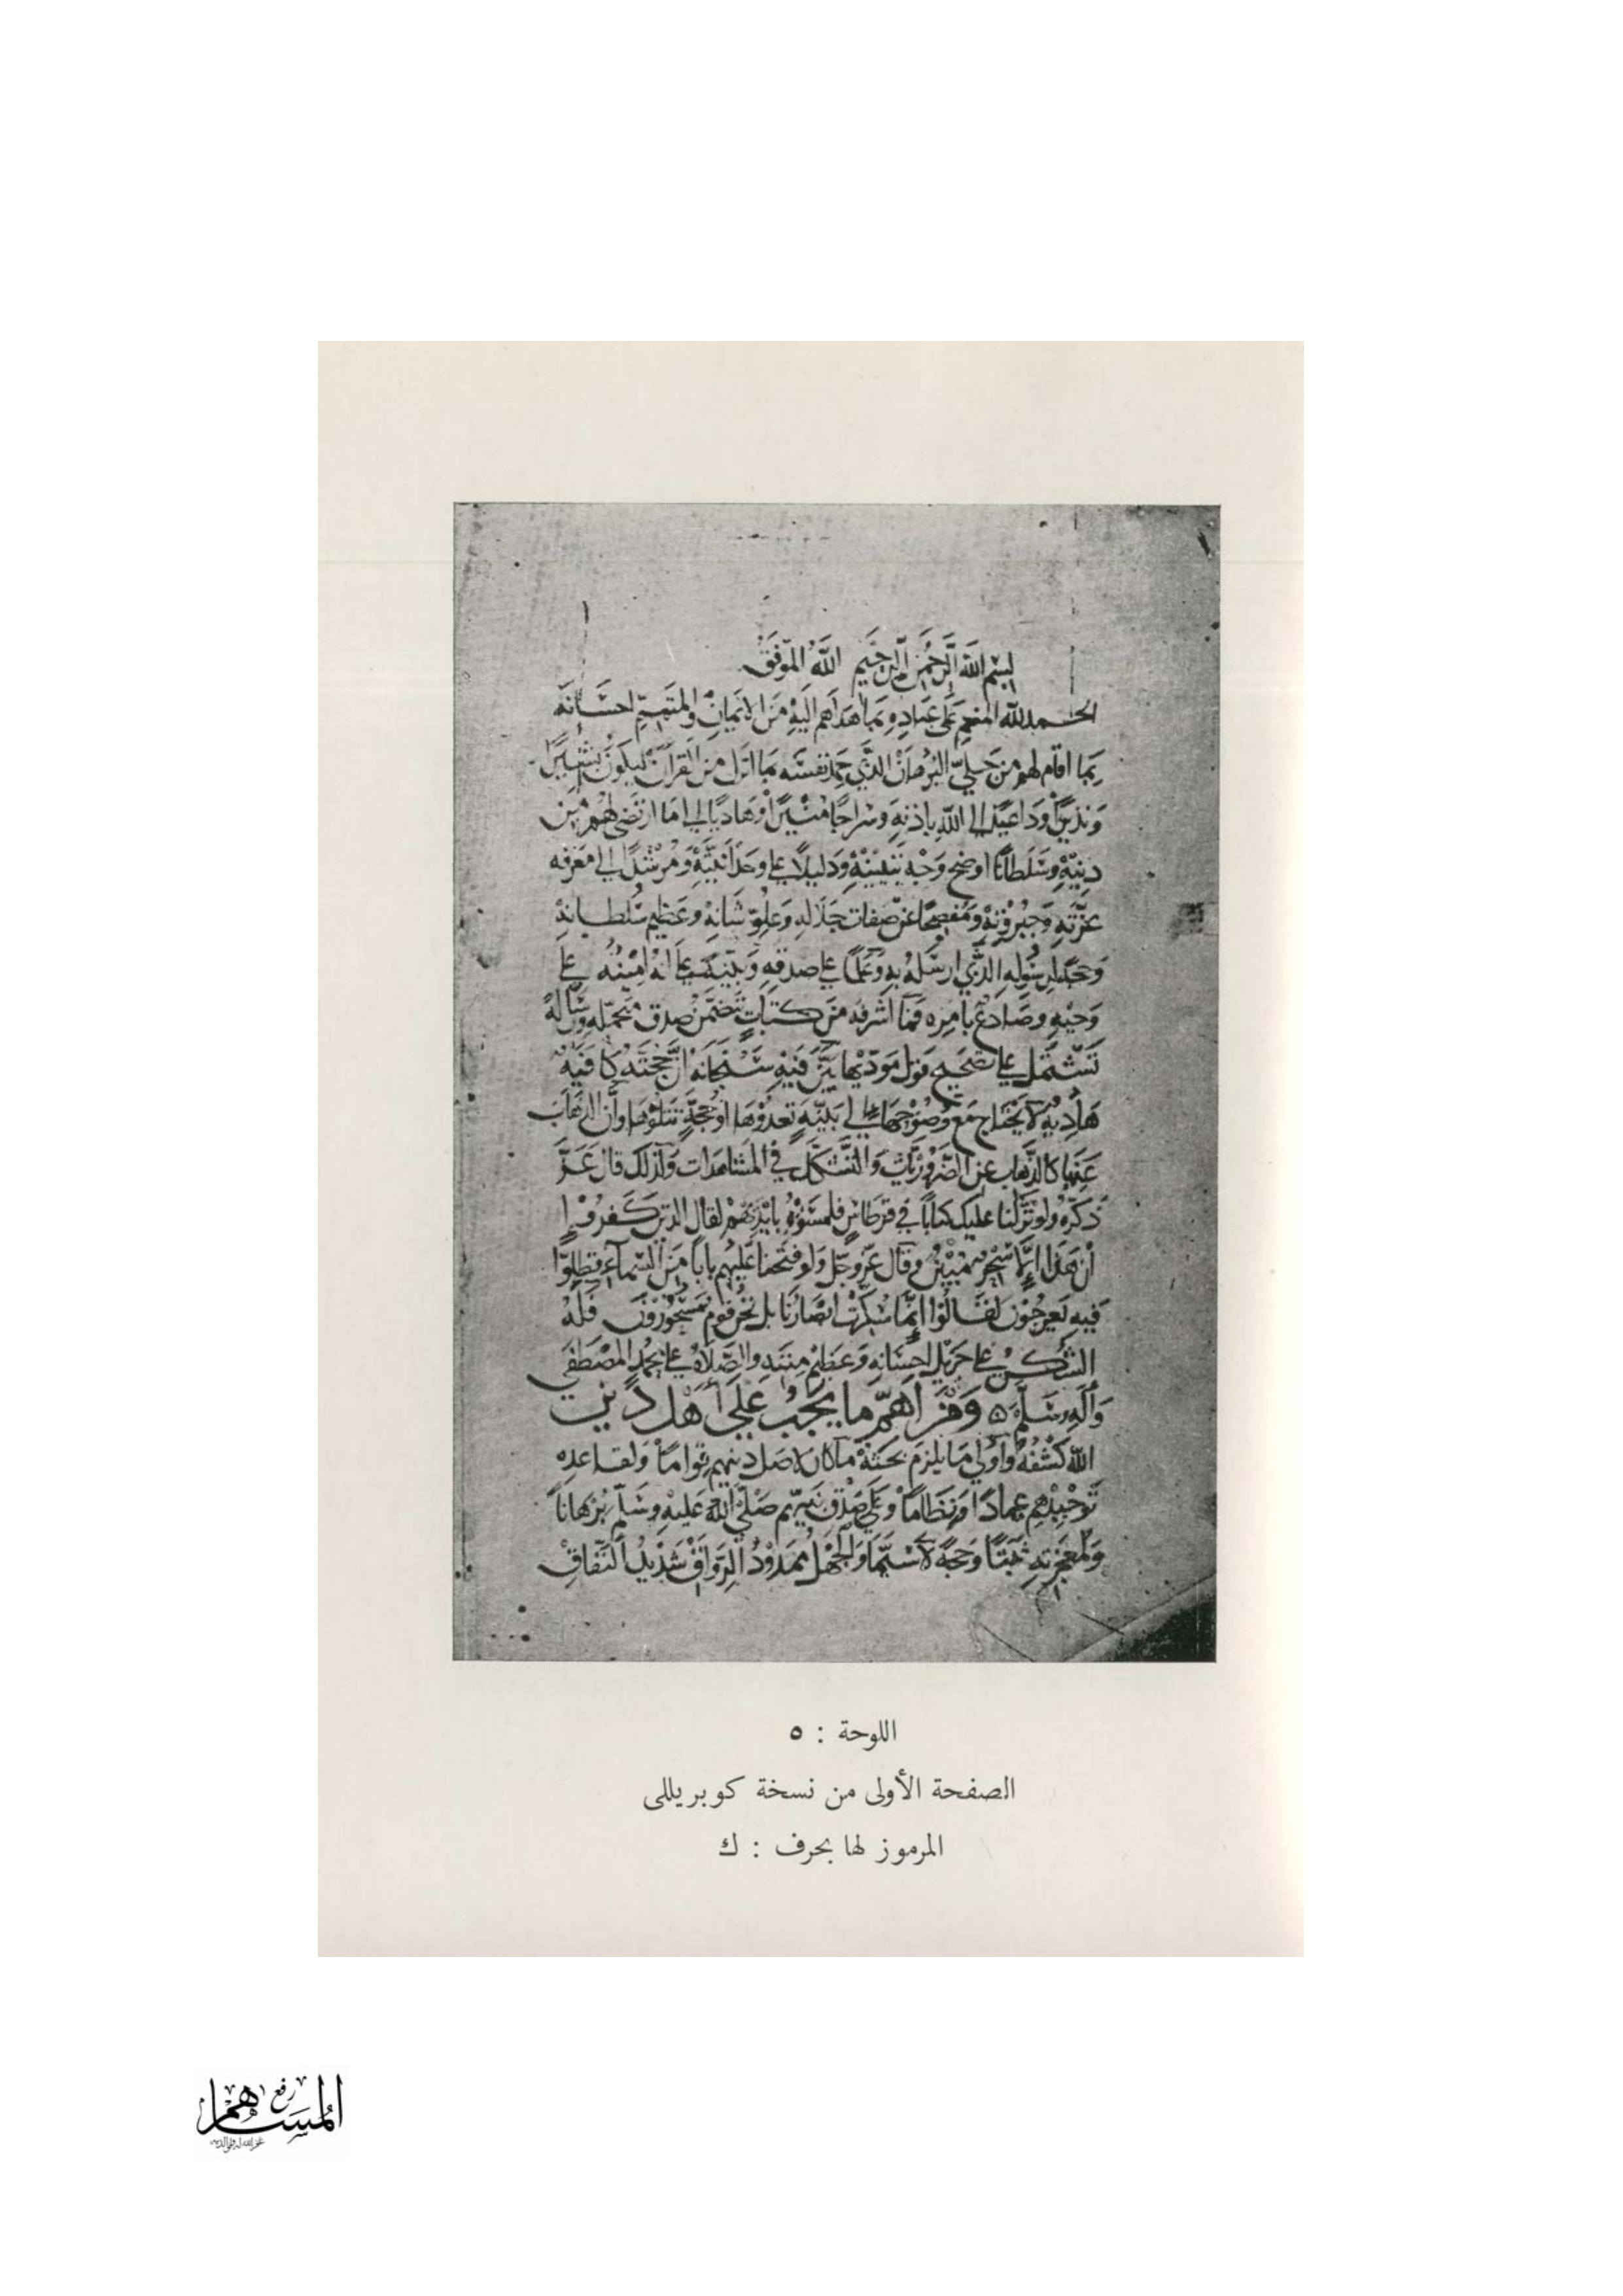 بسم الله الرحمن الرحيم الله الموفق
الحمد لله المنعم على عباده بما هداهم اليه من الايمان والمتمم احسانه
بما اقام لهم من جلي البرهان الذي حمد نفسه بما انزل من القرآن ليكون بشيرا
ونذيرا وداعيا الى الله باذنه وسراجا منيرا وهاديا الى ما ارتضى لهم من
دينه وسلطانا اوضح وجه تبيينه ودليلا على وحدانيته ومرشدا الى معرفة
عزته وجبروته ومفصحا عن صفات جلاله وعلو شانه وعظيم سلطانه
وحجة لرسوله الذي ارسله به وعلما على صدقه وبينة على انه امينه على
وحيه وصادع بامره فما اشرفه من كتاب يتضمن صدق متحمله ورسالة
تشتمل على تصحيح قول مؤديها بين فيه سبحانه ان حجته كافية
هادية لا يحتاج مع وضوحها الى بينة تعدوها او حجة تتلوها وان الذهاب
عنها كالذهاب عن الضروريات والتشكك في المشاهدات ولذلك قال عز
ذكره ولو نزلنا عليك كتابا في قرطاس فلمسوه بايديهم لقال الذين كفروا
ان هذا الا سحر مبين وقال عز وجل ولو فتحنا عليهم بابا من السماء فظلوا
فيه يعرجون لقالوا انما سكرت ابصارنا بل نحن قوم مسحورون فله
الشكر على جزيل احسانه وعظيم مننه والصلاة على محمد المصطفى
وآله وسلم ومن اهم ما يجب على اهل دين
الله كشفه واولى ما يلزم بحثه ما كان لاصل دينهم قواما ولقاعدة
توحيدهم عمادا ونظاما وعلى صدق نبيهم صلى الله عليه وسلم برهانا
ولمعجزته ثبتا وحجة لا سيما والجهل ممدود الرواق شديد النفاق
اللوحة : ٥
الصفحة الأولى من نسخة كوبريللى
المرموز لها بحرف : ك
رفع
المساهم
غفر الله له ولوالديه